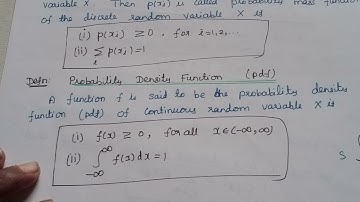 variable X. Then p(xᵢ) is called probability mass
of the discrete random variable X is
(i) p(xᵢ) ≥ 0 , for i=1,2,...
(ii) Σᵢ p(xᵢ)=1
Defn: Probability Density Function (pdf)
A function f is said to be the probability density
function (pdf) of continuous random variable X is
(i) f(x) ≥ 0, for all x∈(-∞,∞)
(ii) ∫_{-∞}^{∞} f(x)dx = 1
S